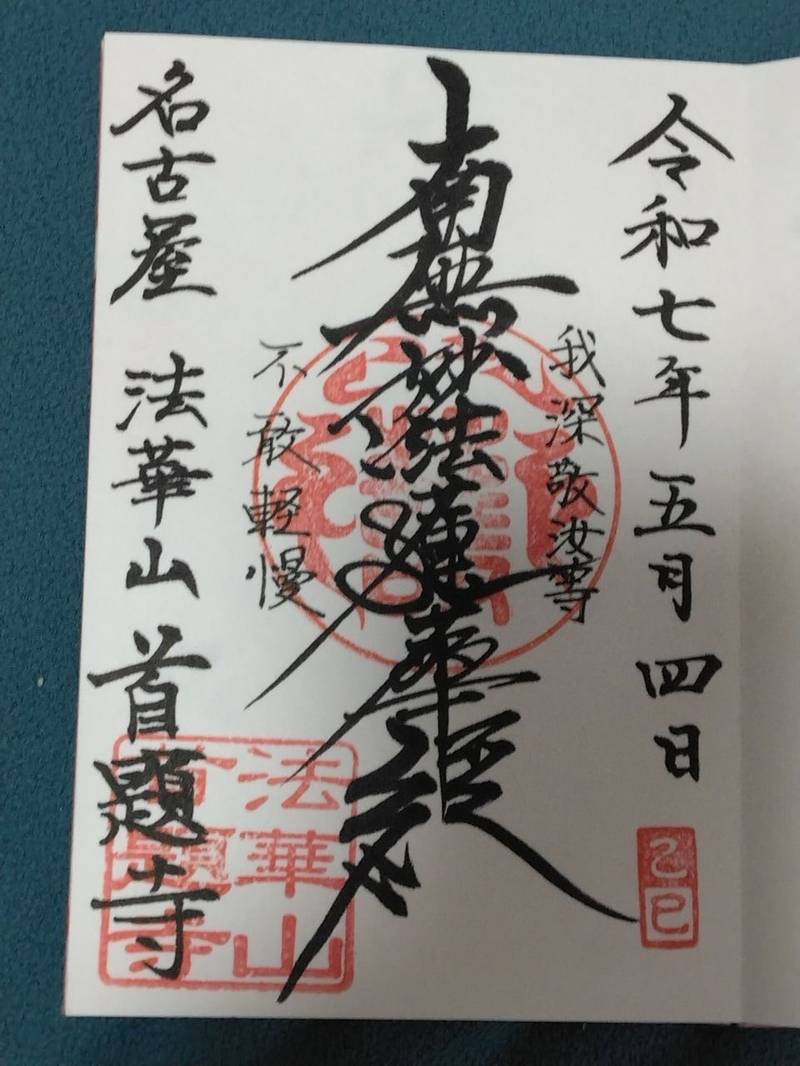 令和七年五月四日
己巳
我深敬汝等
南無妙法蓮華経
不敢軽慢
名古屋 法華山 首題寺
法華山
首題寺